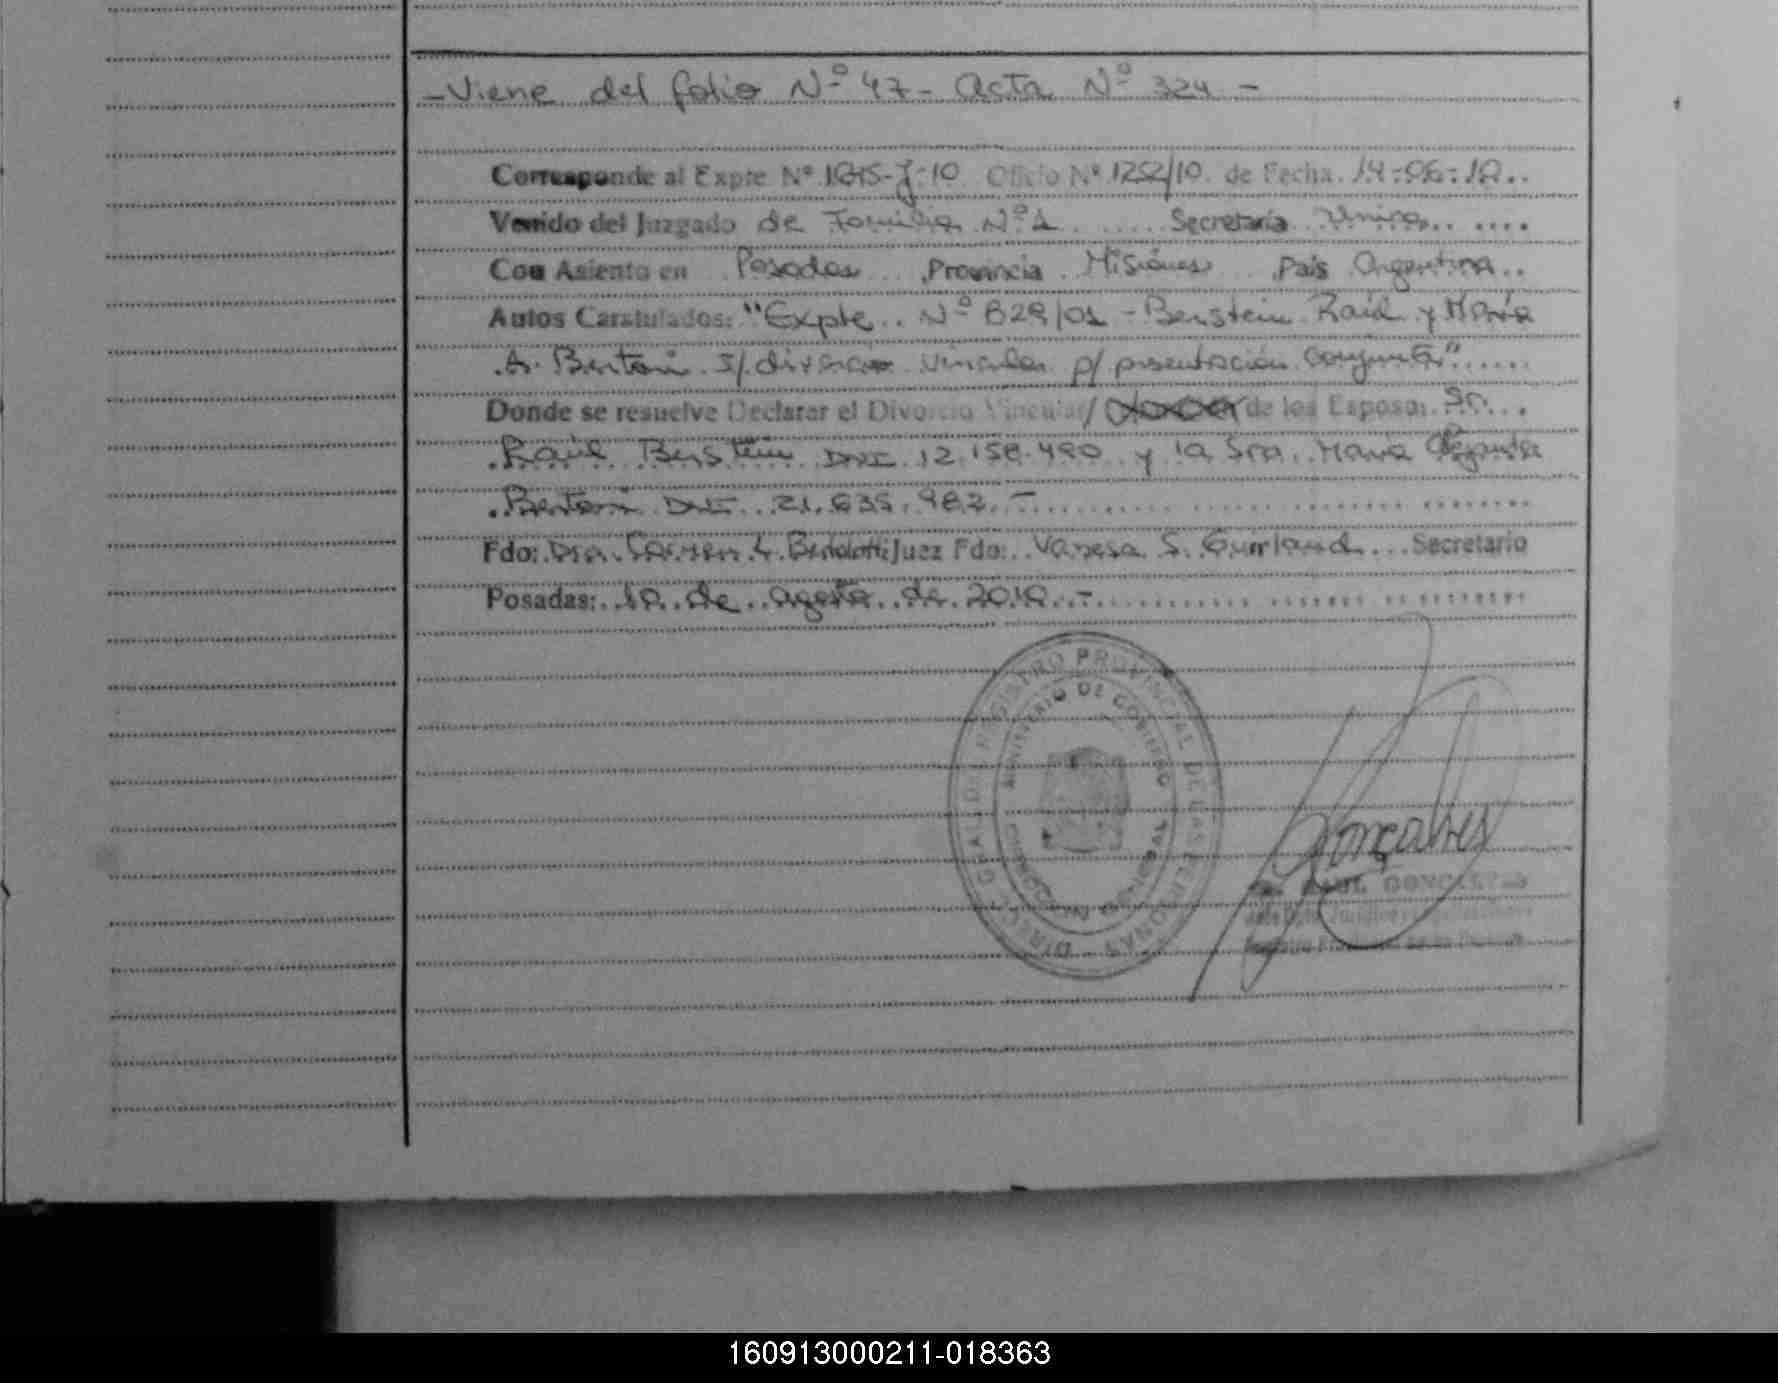 -Viene del folio Nº 47- Acta Nº 324 -
Corresponde al Expte Nº 1615-J-10 Oficio Nº 1252/10 de Fecha 14-06-10
Venido del Juzgado de Familia Nº 1 Secretaria Unica
Con Asiento en Posadas Provincia Misiones País Argentina
Autos Caratulados: "Expte. Nº 829/01 - Berstein Raúl y María
A. Bertoni s/ divorcio vincular p/ presentación conjunta"
Donde se resuelve Declarar el Divorcio Vincular/ de los Esposos Sr.
Raúl Berstein DNI 12.158.490 y la Sra. María Alejandra
Bertoni DNI 21.635.982.-
Fdo: Dra. Carmen L. Bertolotti Juez Fdo: Vanesa S. Gurland Secretario
Posadas: 10 de agosto de 2010.-
DIREC. GRAL. DEL REGISTRO PROVINCIAL DE LAS PERSONAS
MINISTERIO DE GOBIERNO
RAUL GONCALVES
160913000211-018363